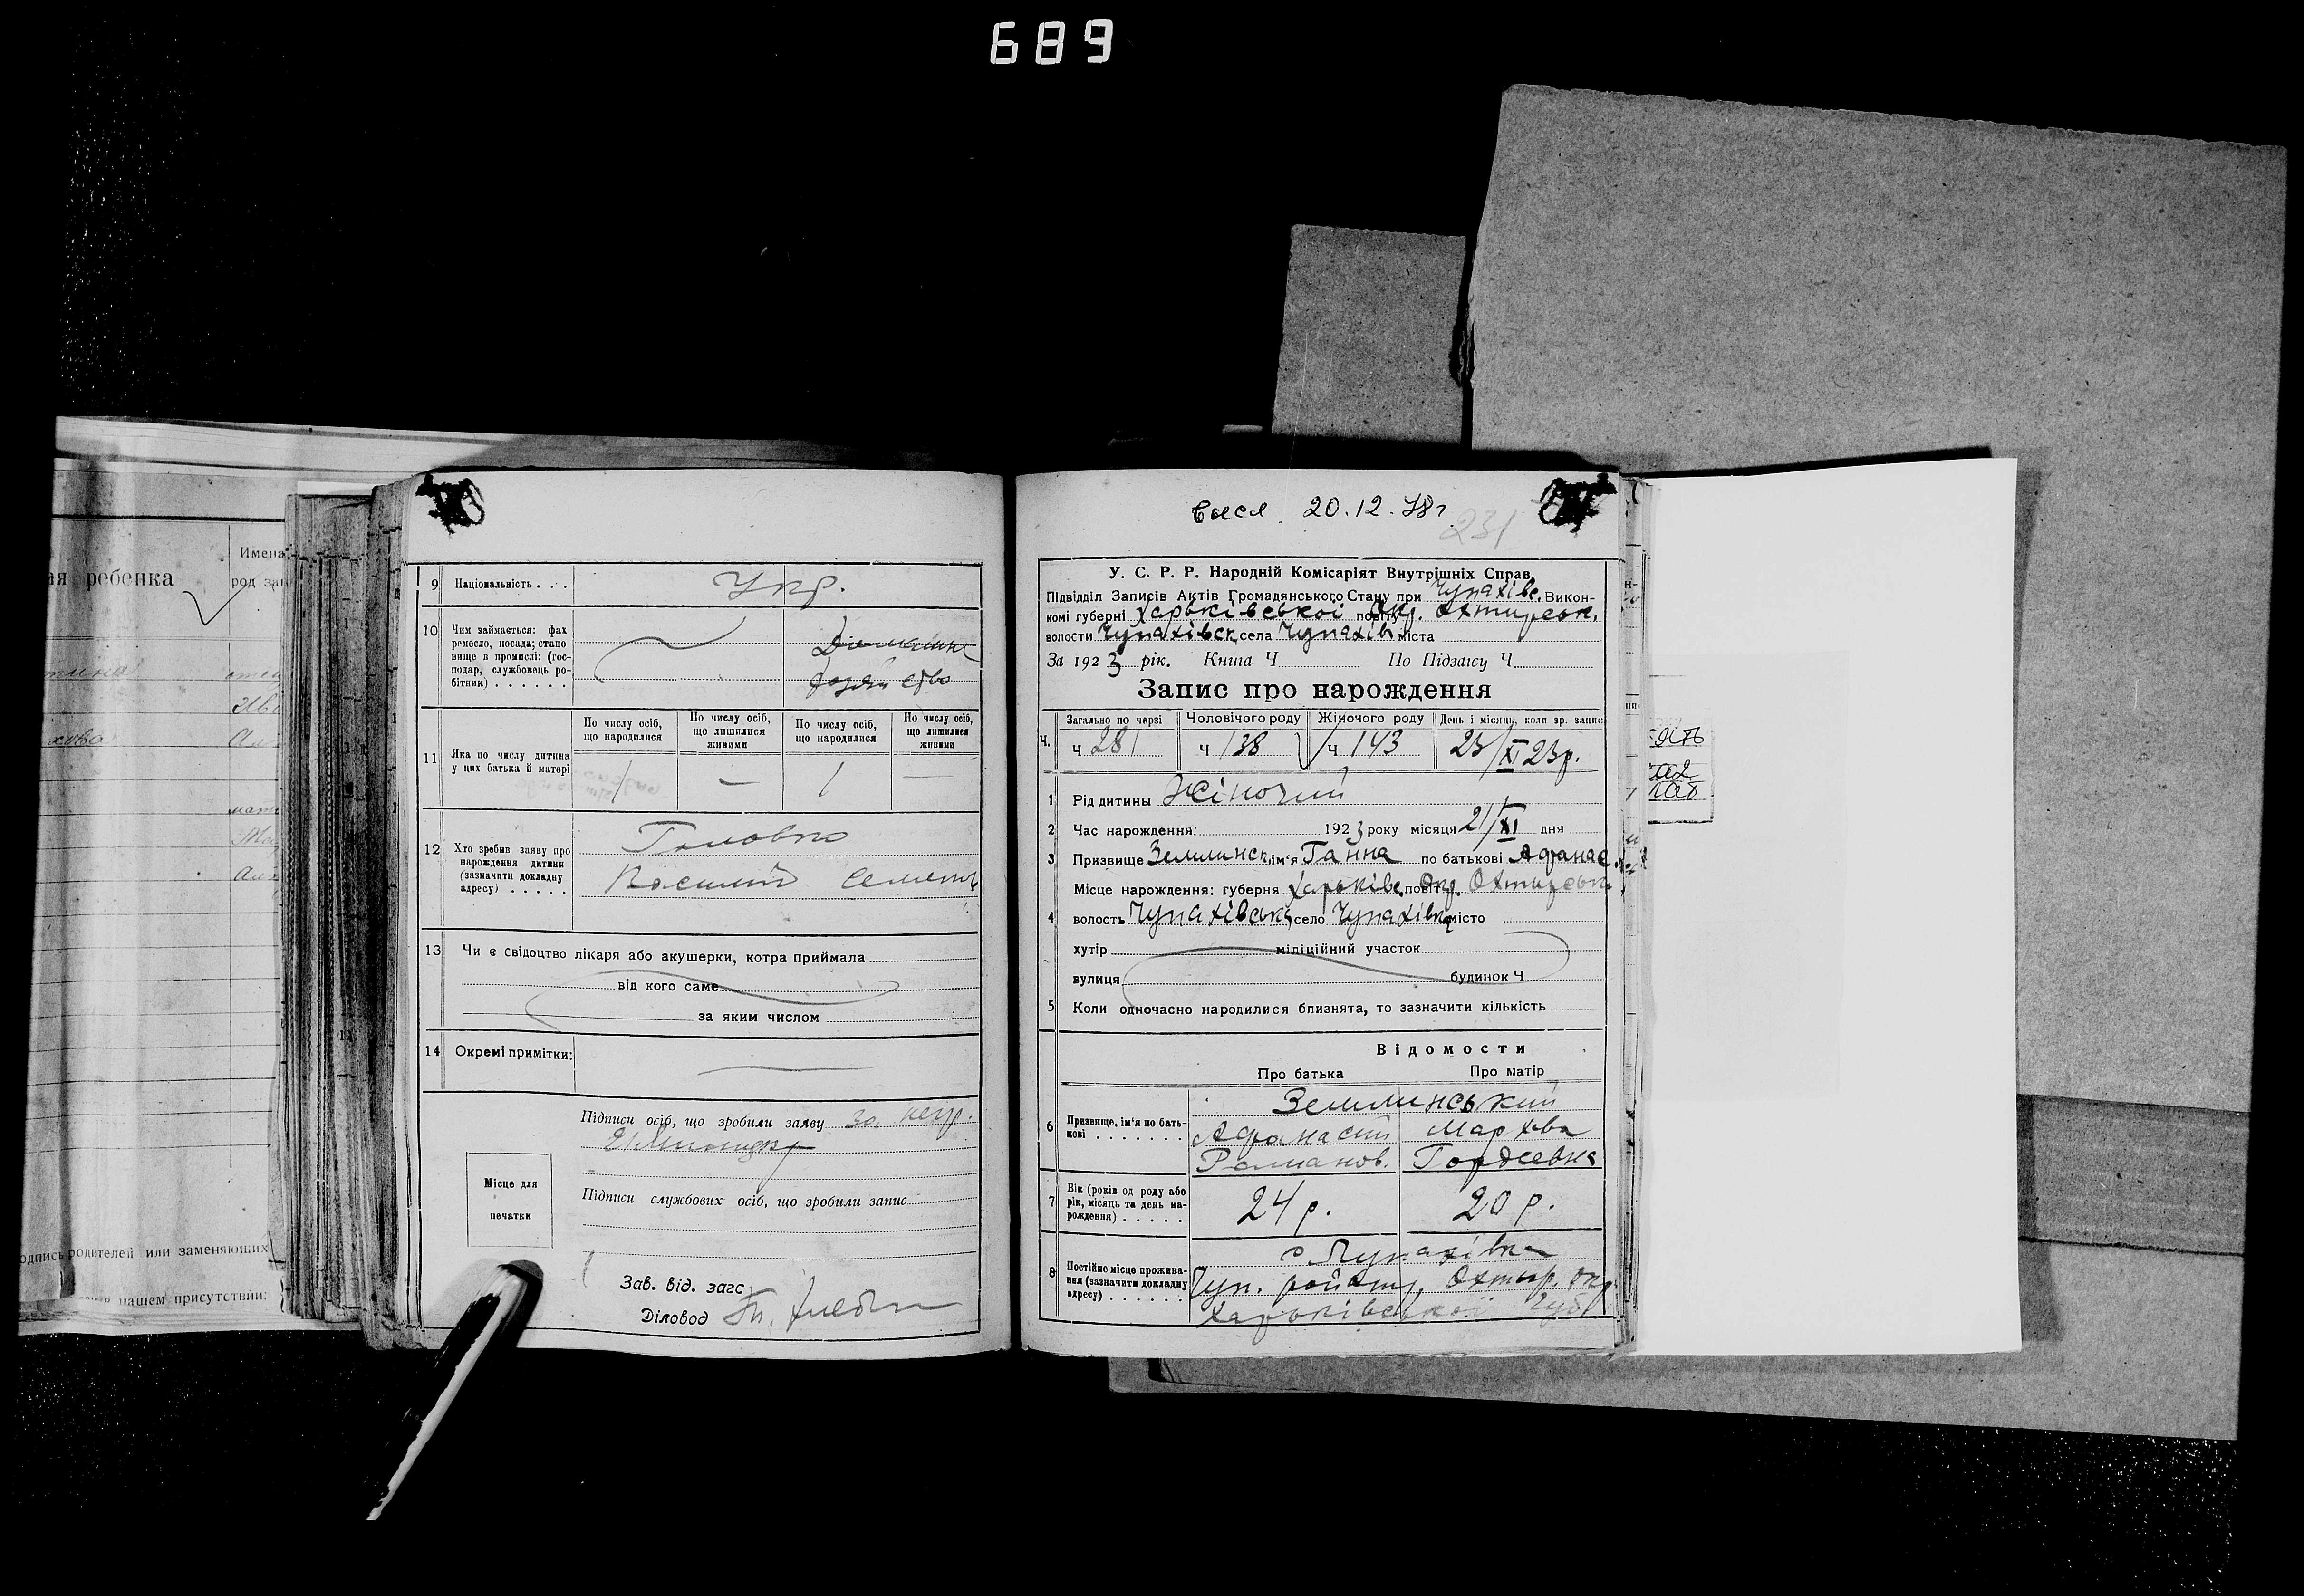 689
ребенка
Имена
род
9 Національність . . . Укр.
10 Чим займається: фах
ремесло, посада; стано
вище в промислі: (гос-
подар, службовець ро-
бітник) . . . . . .
хозяйство
По числу осіб, що народилися
По числу осіб, що лишилися живими
По числу осіб, що народилися
По числу осіб, що лишилися живими
11 Яка по числу дитина
у цих батька й матері
1 — 1 —
12 Хто зробив заяву про
нарождення дитини
(зазначити докладну
адресу) . . . . .
Головко
Василий Семенів
13 Чи є свідоцтво лікаря або акушерки, котра приймала
від кого саме
за яким числом
14 Окремі примітки:
Підписи осіб, що зробили заяву За негр.
Місце для
печатки
Підписи службових осіб, що зробили запис
Зав. від. загс
Діловод
родителей или заменяющих
в нашем присутствии:
20.12.78г.
231
У. С. Р. Р. Народній Комісаріят Внутрішніх Справ.
Підвідділ Записів Актів Громадянського Стану при Чупахівс. Викон-
комі губерні Харьківської повіту Окр. Охтирськ.
волости Чупахівск. села Чупахів міста
За 1923 рік. Книга Ч По Підзагсу Ч.
Запис про нарождення
Загально по черзі Чоловічого роду Жіночого роду День і місяць, коли зр. запис
Ч. ч 281 ч 138 ч 143 23/XI 23р.
1 Рід дитини Жіночий
2 Час нарождення: 1923 року місяця 21/XI дня
3 Призвище Землинськ. ім'я Ганна по батькові Афанас
Місце нарождення: губерня Харьківс. повіт Окр. Охтирськ
4 волость Чупахівськ. село Чупахівка місто
хутір міліційний участок
вулиця будинок Ч
5 Коли одночасно народилися близнята, то зазначити кількість
Відомости
Про батька Про матір
6 Призвище, ім'я по бать-
кові . . . . . . . .
Землинський
Афанасий Марфва
Романов. Гордеевна
7 Вік (років од роду або
рік, місяць та день на-
рождення) . . . . . .
24 р. 20 р.
8 Постійне місце прожива-
ння (зазначити докладну
адресу) . . . . . . .
с Чупахівка
Чуп. району, Охтир. окр
Харьківської Губ.